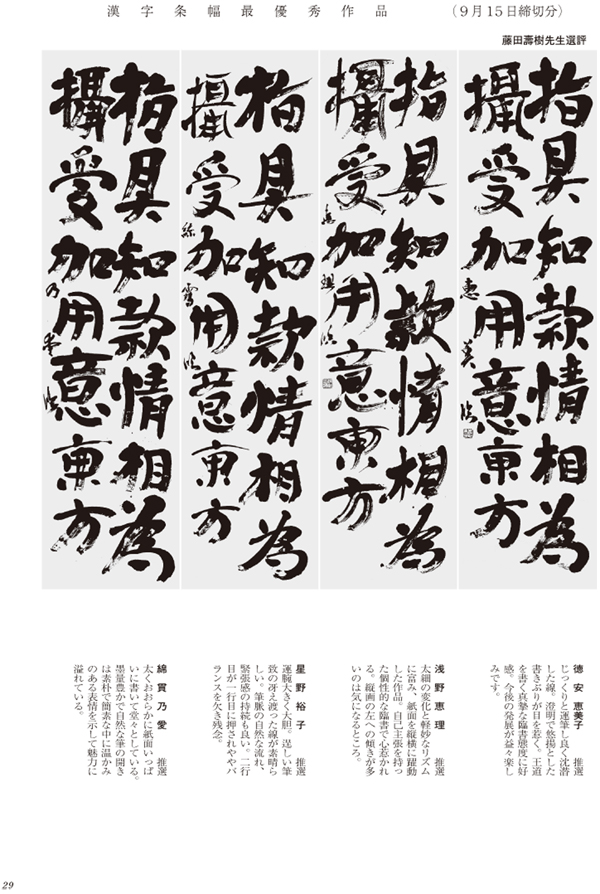 漢字条幅最優秀作品 （9月15日締切分）
藤田壽樹先生選評
指具知款情相為
攝受加用意東方
惠美臨
指具知款情相為
攝受加用意東方
惠理臨
指具知款情相為
攝受加用意東方
指具知款情相為
攝受加用意東方
乃愛臨
德安恵美子 推選
じっくりと運筆し良く沈潜
した線。澄明で悠揚とした
書きぶりが目を惹く。王道
を書く真摯な臨書態度に好
感。今後の発展が益々楽し
みです。
浅野恵理 推選
太細の変化と軽妙なリズム
に富み、紙面を縦横に躍動
した作品。自己主張を持っ
た個性的な臨書で心惹かれ
る。縦画の左への傾きが多
いのは気になるところ。
星野裕子 推選
運腕大きく大胆。逞しい筆
致の冴え渡った線が素晴ら
しい。筆脈の自然な流れ、
緊張感の持続も良い。二行
目が一行目に押されややバ
ランスを欠き残念。
綿貫乃愛 推選
太くおおらかに紙面いっぱ
いに書いて堂々としている。
墨量豊かで自然な筆の開き
は素朴で簡素な中に温かみ
のある表情を示して魅力に
溢れている。
29